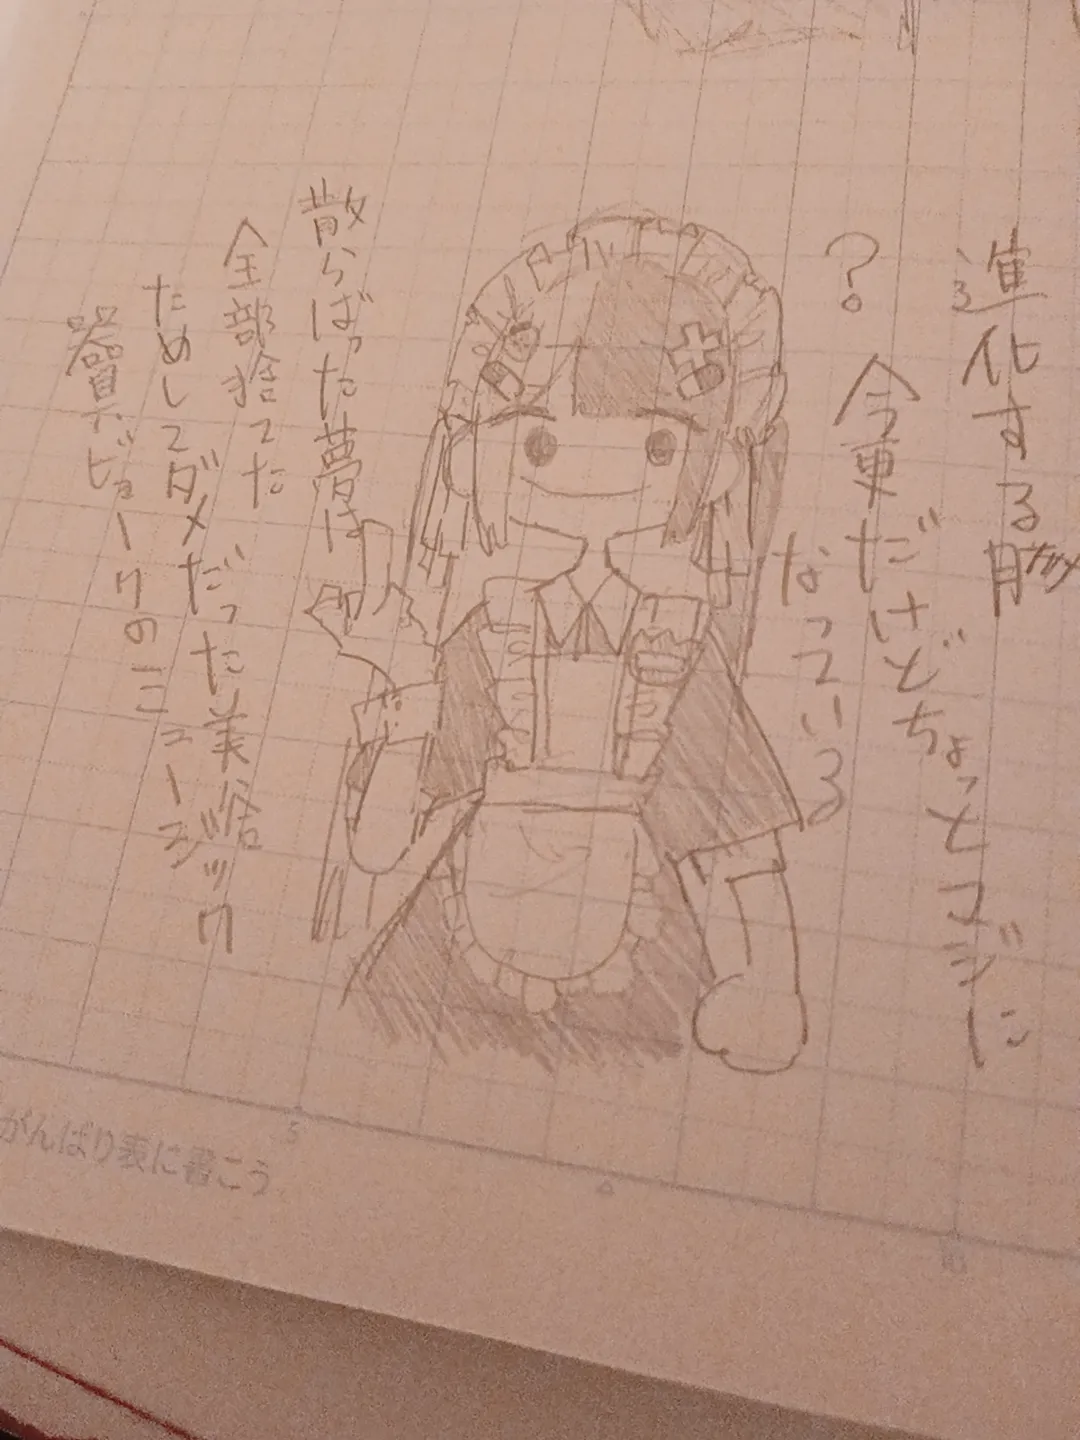 進化する
？今更だけどちょっとマジに
なっている
散らばった夢は
全部捨てた
ためしてダメだった美
器 ビューワのミュージック
がんばり表に書こう
5
10